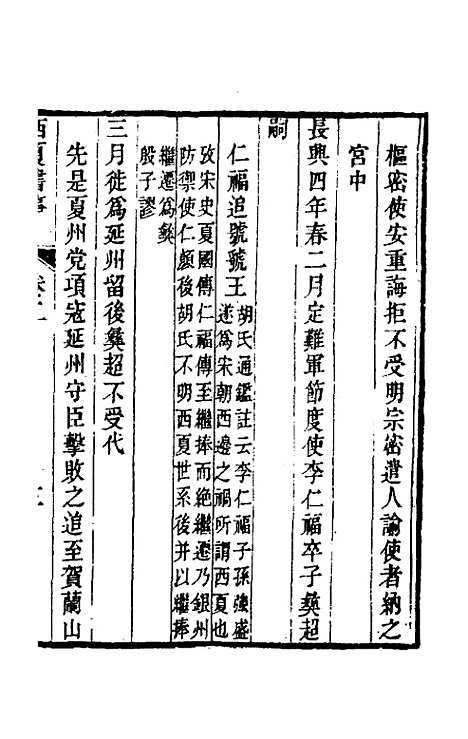 樞密使安重誨拒不受明宗密遣人諭使者納之
宮中
長興四年春二月定難軍節度使李仁福卒子彝超
嗣
仁福追號虢王
胡氏通鑑註云李仁福子孫強盛
遂為宋朝西邊之禍所謂西夏也
攷宋史夏國傳仁福傳至繼捧而絶繼遷乃銀州
防禦使仁顏後胡氏不明西夏世系後并以繼捧
繼遷為彝
殷子謬
三月徙為延州留後彝超不受代
先是夏州党項寇延州守臣擊敗之追至賀蘭山
西夏書事
卷二